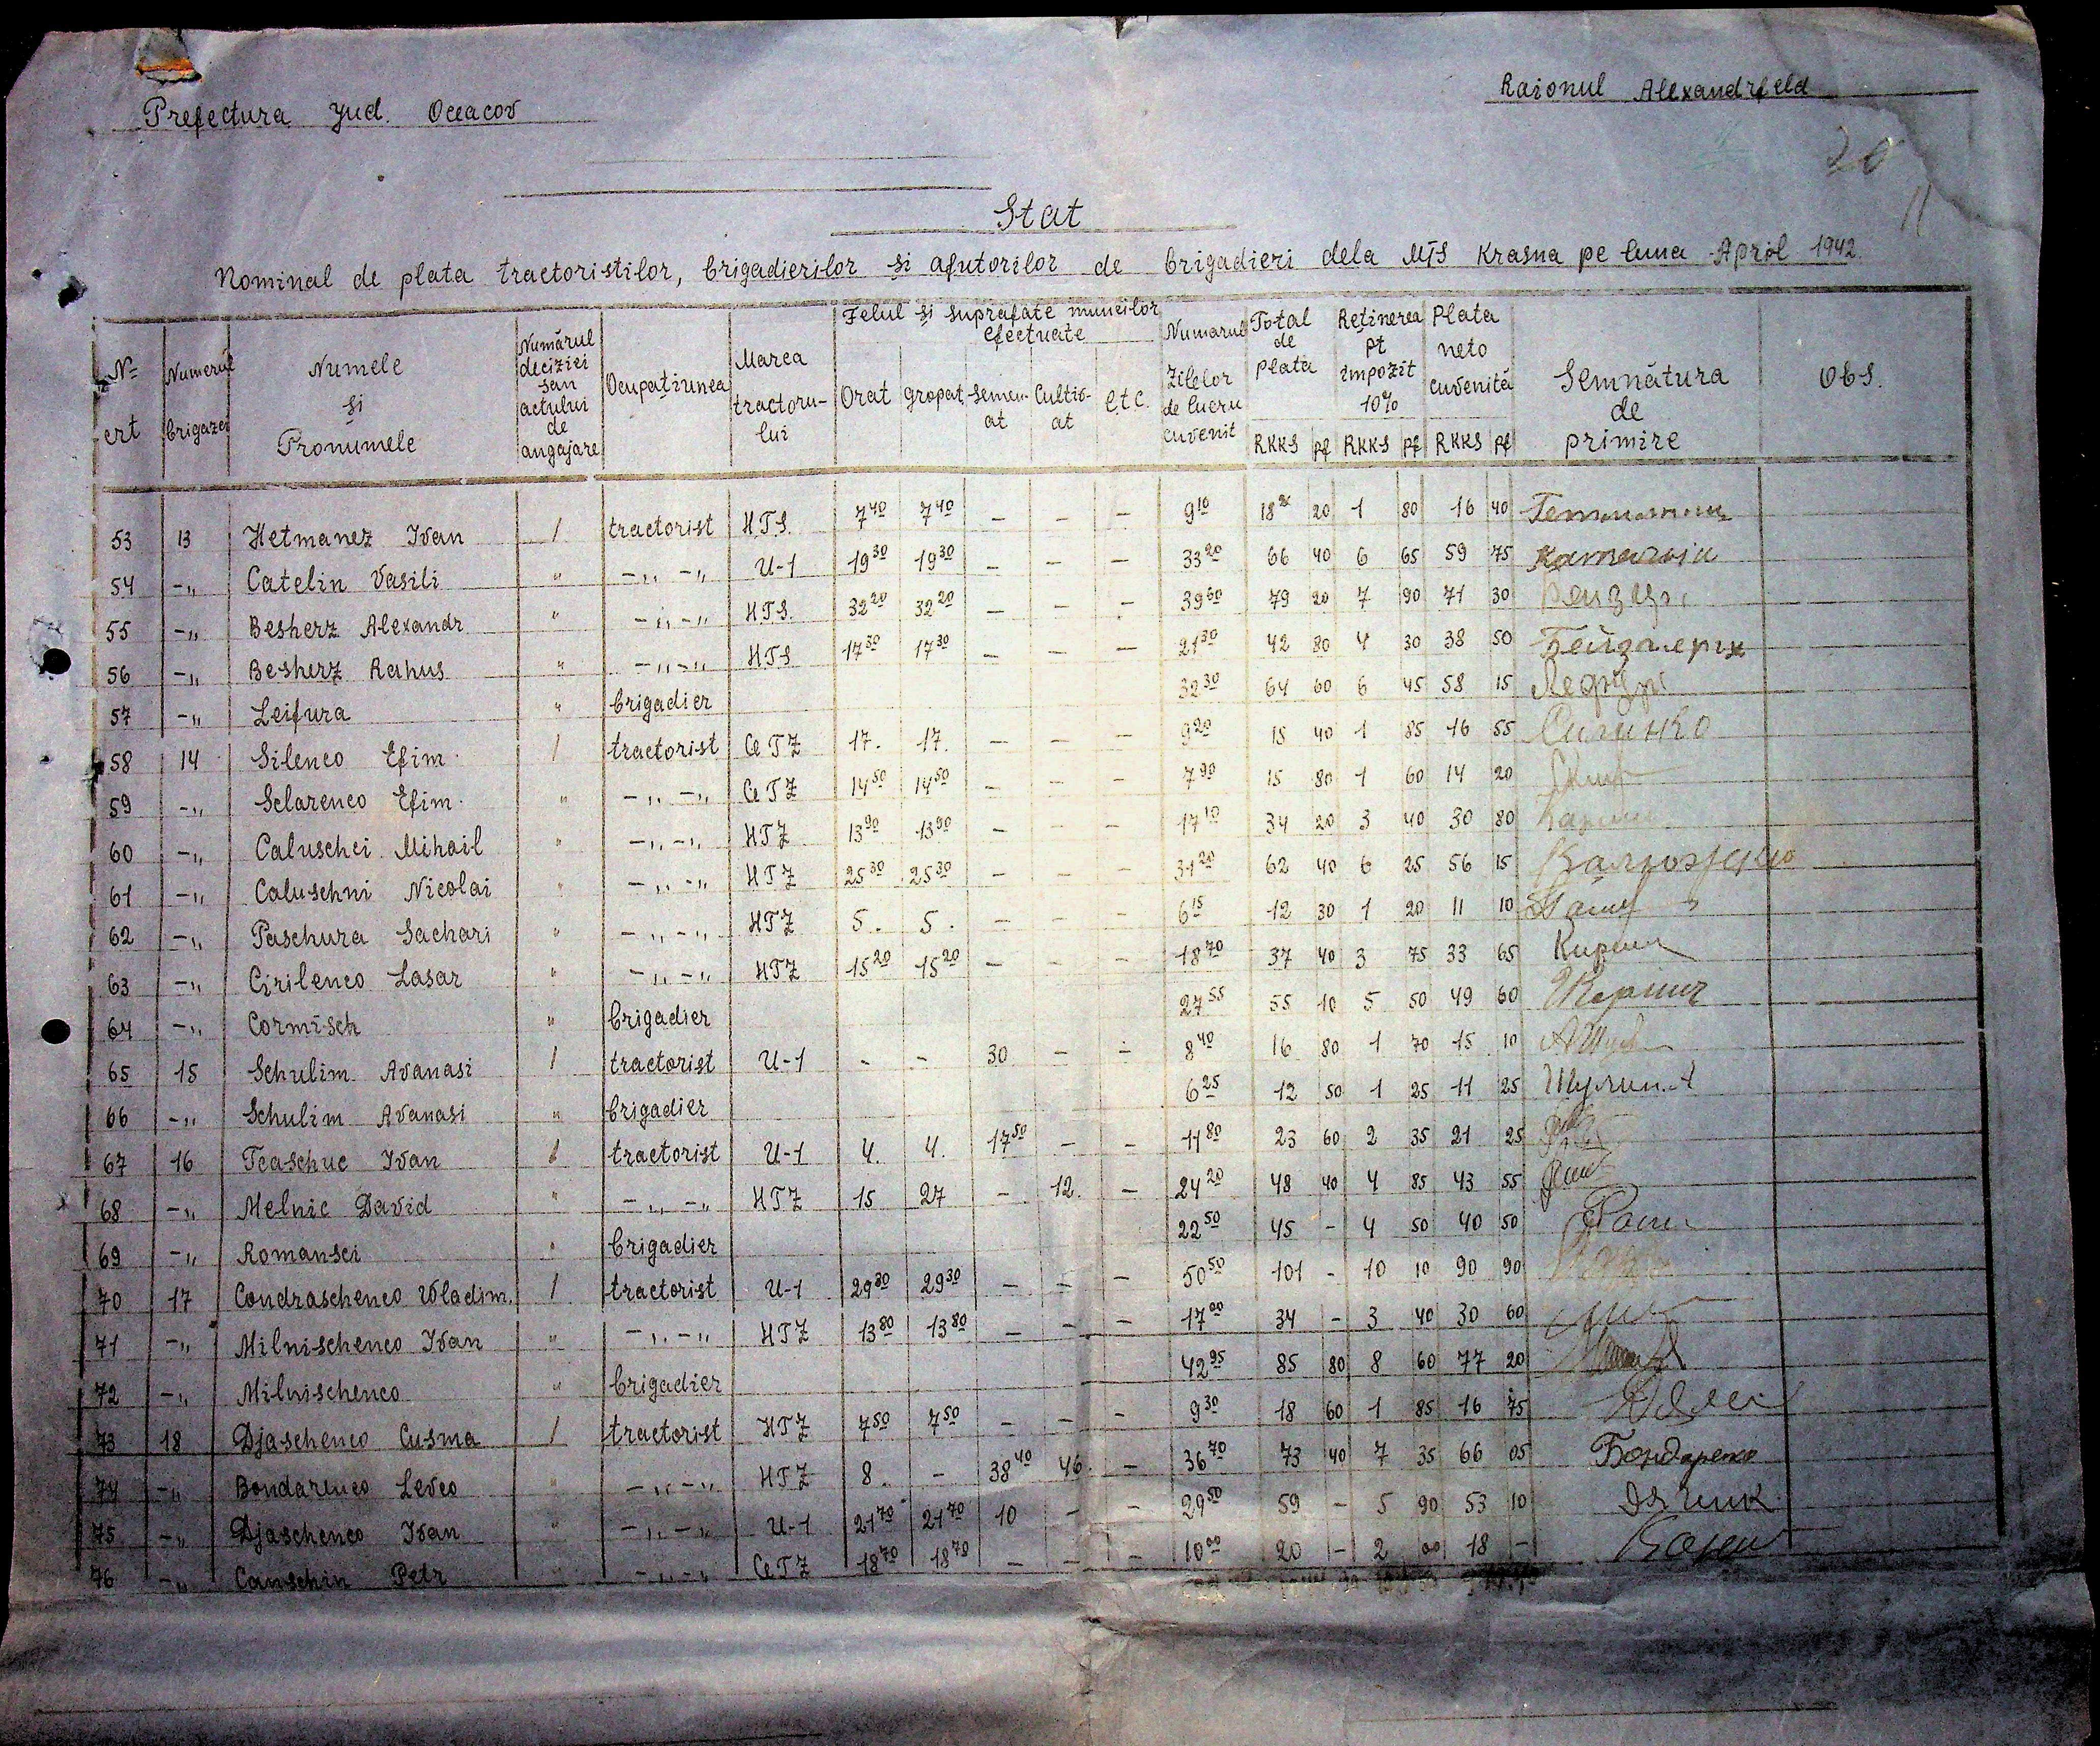 Prefectura Jud. Oceacov
Raionul Alexandrfeld
20
Stat
Nominal de plata tractoristilor, brigadierilor si ajutorilor de brigadieri dela MTS Krasna pe luna April 1942.
Nº crt | Numerul brigazei | Numele si Pronumele | Numărul deciziei sau actului de angajare | Ocupaţiunea | Marca tractorului | Felul si suprafate muncilor efectuate: Orat | gropat | Semenat | Cultivat | etc. | Numarul Zilelor de lucru cuvenit | Total de plata RKKS pf | Reţinerea pt impozit 10% RKKS pf | Plata neto cuvenită RKKS pf | Semnătura de primire | Obs.
53 | 13 | Hetmanez Ivan | / | tractorist | HTS. | 7 40 | 7 40 | – | – | – | 9 10 | 18 20 | 1 80 | 16 40
54 | -"- | Catelin Vasili | " | -"- -"- | U-1 | 19 30 | 19 30 | – | – | – | 33 20 | 66 40 | 6 65 | 59 75
55 | -"- | Besherz Alexandr | " | -"- -"- | HTS. | 32 20 | 32 20 | – | – | – | 39 60 | 79 20 | 7 90 | 71 30
56 | -"- | Besherz Rahus | " | -"- -"- | HTS | 17 30 | 17 30 | – | – | – | 21 30 | 42 80 | 4 30 | 38 50
57 | -"- | Leifura | " | brigadier | 32 30 | 64 60 | 6 45 | 58 15
58 | 14 | Silenco Efim | / | tractorist | CeTZ | 17. | 17. | – | – | – | 9 20 | 18 40 | 1 85 | 16 55 | Силинко
59 | -"- | Sclarenco Efim | " | -"- -"- | CeTZ | 14 50 | 14 50 | – | – | – | 7 90 | 15 80 | 1 60 | 14 20
60 | -"- | Caluschci Mihail | " | -"- -"- | HTZ | 13 90 | 13 90 | – | – | – | 17 10 | 34 20 | 3 40 | 30 80
61 | -"- | Caluschni Nicolai | " | -"- -"- | HTZ | 25 30 | 25 30 | – | – | – | 31 20 | 62 40 | 6 25 | 56 15
62 | -"- | Paschura Sachari | " | -"- -"- | HTZ | 5. | 5. | – | – | – | 6 15 | 12 30 | 1 20 | 11 10
63 | -"- | Cirilenco Lasar | " | -"- -"- | HTZ | 15 20 | 15 20 | – | – | – | 18 70 | 37 40 | 3 75 | 33 65
64 | -"- | Cormisch | " | brigadier | 27 55 | 55 10 | 5 50 | 49 60
65 | 15 | Schulim Avanasi | / | tractorist | U-1 | - | - | 30 | – | – | 8 40 | 16 80 | 1 70 | 15 10
66 | -"- | Schulim Avanasi | " | brigadier | 6 25 | 12 50 | 1 25 | 11 25 | Шулим А
67 | 16 | Tcaschuc Ivan | / | tractorist | U-1 | 4. | 4. | 17 50 | – | – | 11 80 | 23 60 | 2 35 | 21 25
68 | -"- | Melnic David | " | -"- -"- | HTZ | 15 | 27 | – | 12. | – | 24 20 | 48 40 | 4 85 | 43 55
69 | -"- | Romansci | " | brigadier | 22 50 | 45 - | 4 50 | 40 50
70 | 17 | Condraschenco Wladim. | / | tractorist | U-1 | 29 30 | 29 30 | – | – | – | 50 50 | 101 - | 10 10 | 90 90
71 | -"- | Milnischenco Ivan | " | -"- -"- | HTZ | 13 80 | 13 80 | – | – | – | 17 00 | 34 - | 3 40 | 30 60
72 | -"- | Milnischenco | " | brigadier | 42 95 | 85 80 | 8 60 | 77 20
73 | 18 | Djaschenco Cusma | / | tractorist | HTZ | 7 50 | 7 50 | – | – | – | 9 30 | 18 60 | 1 85 | 16 75
74 | -"- | Bondarenco Levco | " | -"- -"- | HTZ | 8. | – | 38 40 | 46. | – | 36 70 | 73 40 | 7 35 | 66 05 | Бондаренко
75 | -"- | Djaschenco Ivan | " | -"- -"- | U-1 | 21 70 | 21 70 | 10 | - | - | 29 50 | 59 - | 5 90 | 53 10
76 | -"- | Canschin Petr | " | -"- -"- | CeTZ | 18 70 | 18 70 | – | – | – | 10 00 | 20 - | 2 00 | 18 -